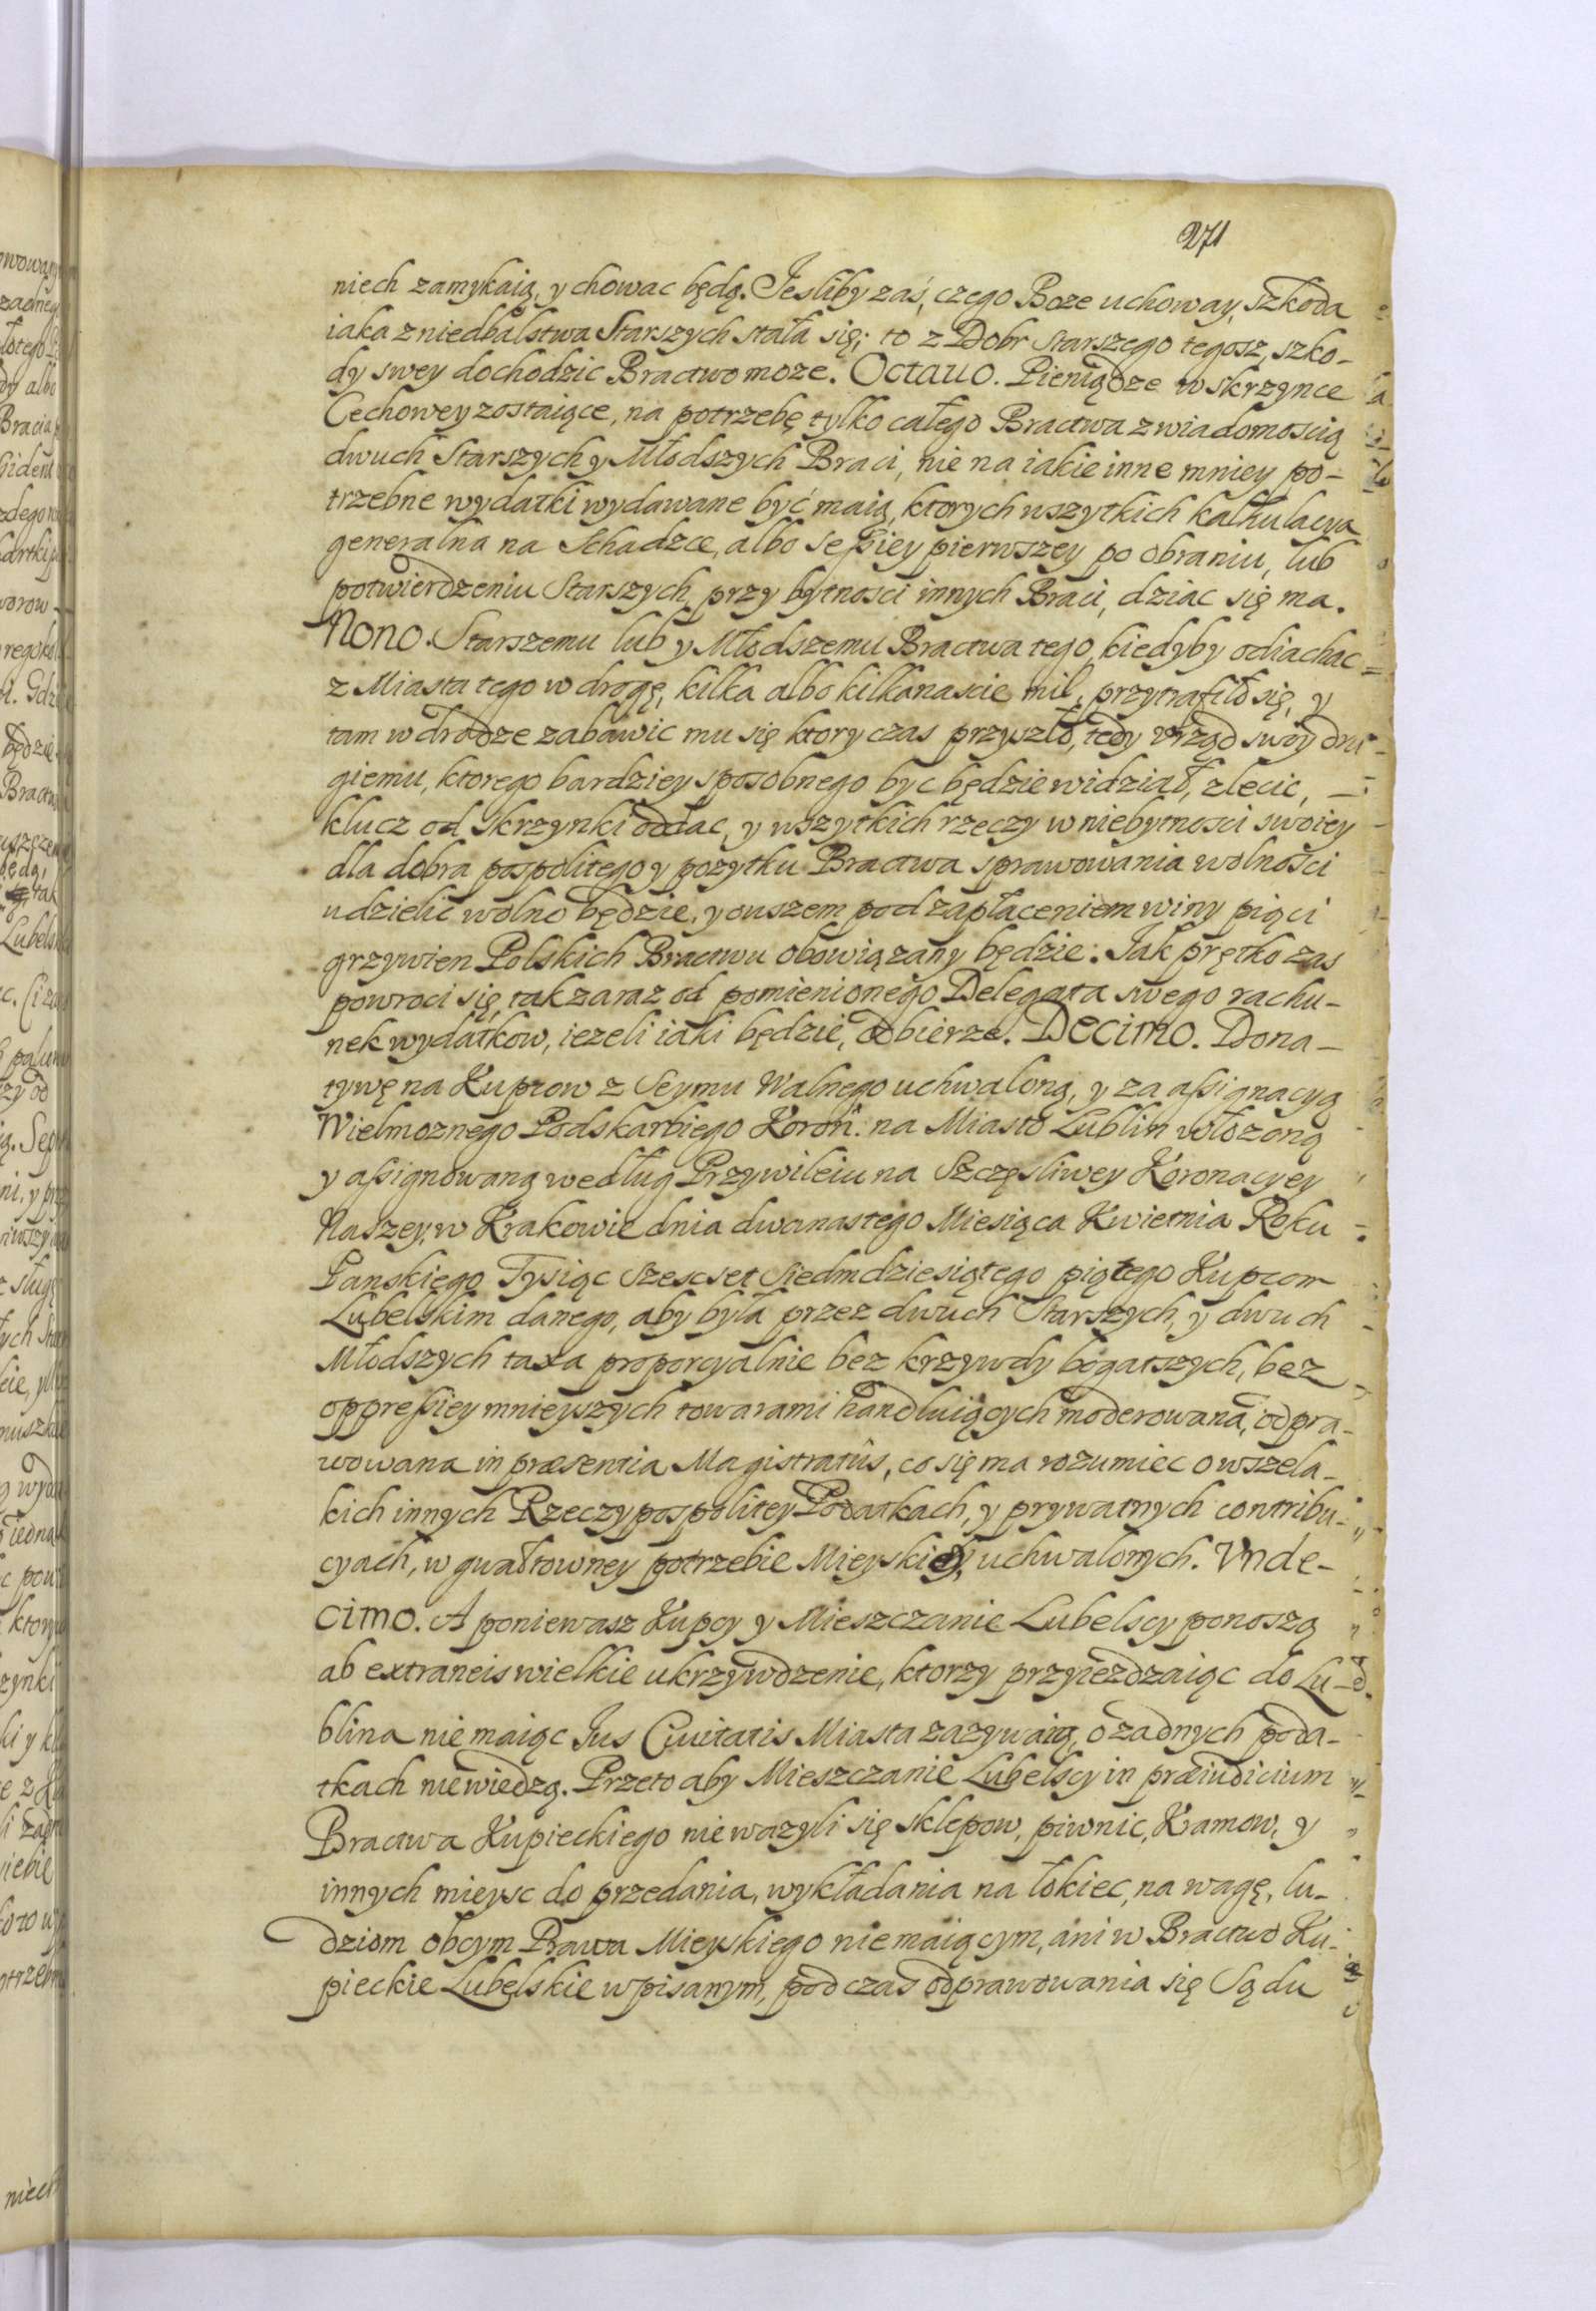 271
niech zamykaią, y chowac będą. Jesliby zaś, czego Boze uchoway, szkoda
iaka z niedbalstwa Starszych stała się; to z Dobr Starszego tegosz, szko-
dy swey dochodzic Bractwo moze. Octauo. Pieniądze w skrzynce
Cechowey zostaiące, na potrzebę tylko całego Bractwa z wiadomoscią
dwuch Starszych y Młodszych Braci, nie na iakie inne mniey po-
trzebne wydatki wydawane być maią, ktorych wszytkich kalkulacya
generalna na Schadzce, albo Sessiey pierwszey po obraniu, lub
potwierdzeniu Starszych, przy bytnosci innych Braci, dziac się ma.
Nono. Starszemu lub y Młodszemu Bractwa tego, kiedyby odiachac
z Miasta tego w drogę, kilka albo kilkanascie mil, przytrafiło się, y
tam w drodze zabawic mu się ktory czas przyszło, tedy vrząd swoy dru-
giemu, ktorego bardziey sposobnego byc będzie widział, zlecic,
klucz od skrzynki oddac, y wszytkich rzeczy w niebytnosci swoiey
dla dobra pospolitego y pozytku Bractwa sprawowania wolności
udzielic wolno będzie, y owszem pod zapłaceniem winy pięci
grzywien Polskich Bractwu obowiązany będzie: Jak prętko zas
powroci się, tak zaraz od pomienionego Delegata swego rachu-
nek wydatkow, iezeli iaki będzie, odbierze. Decimo. Dona-
tywę na Kupcow z Seymu Walnego uchwaloną, y za assignacyą
Wielmoznego Podskarbiego Koroñ. na Miasto Lublin włozoną
y assignowaną według Przywileiu na Szczęsliwey Koronacyey
Naszey, w Krakowie dnia dwanastego Miesiąca Kwietnia Roku
Panskiego Tysiąc Szescset Siedmdziesiątego piątego Kupcom
Lubelskim danego, aby była przez dwuch Starszych, y dwuch
Młodszych taxa proporcyalnie bez krzywdy bogatszych, bez
oppressiey mnieyszych towarami handluiących moderowana, odpra-
wowana in præsentia Magistratûs, co się ma rozumiec o wszela-
kich innych Rzeczypospolitey Podatkach, y prywatnych contribu-
cyach, w gwałtowney potrzebie Mieyskiey, uchwalonych. Vnde-
cimo. A poniewasz Kupcy y Mieszczanie Lubelscy ponoszą
ab extraneis wielkie ukrzywdzenie, ktorzy przyiezdzaiąc do Lu-
blina nie maiąc Jus Ciuitatis Miasta zazywaią, o zadnych poda-
tkach nie wiedzą. Przeto aby Mieszczanie Lubelscy in præiudicium
Bractwa Kupieckiego nie wazyli się sklepow, piwnic, Kramow, y
innych mieysc do przedania, wykładania na łokiec, na wagę, lu-
dziom obcym Prawa Mieyskiego nie maiącym, ani w Bractwo Ku-
pieckie Lubelskie wpisanym, pod czas odprawowania się Sądu